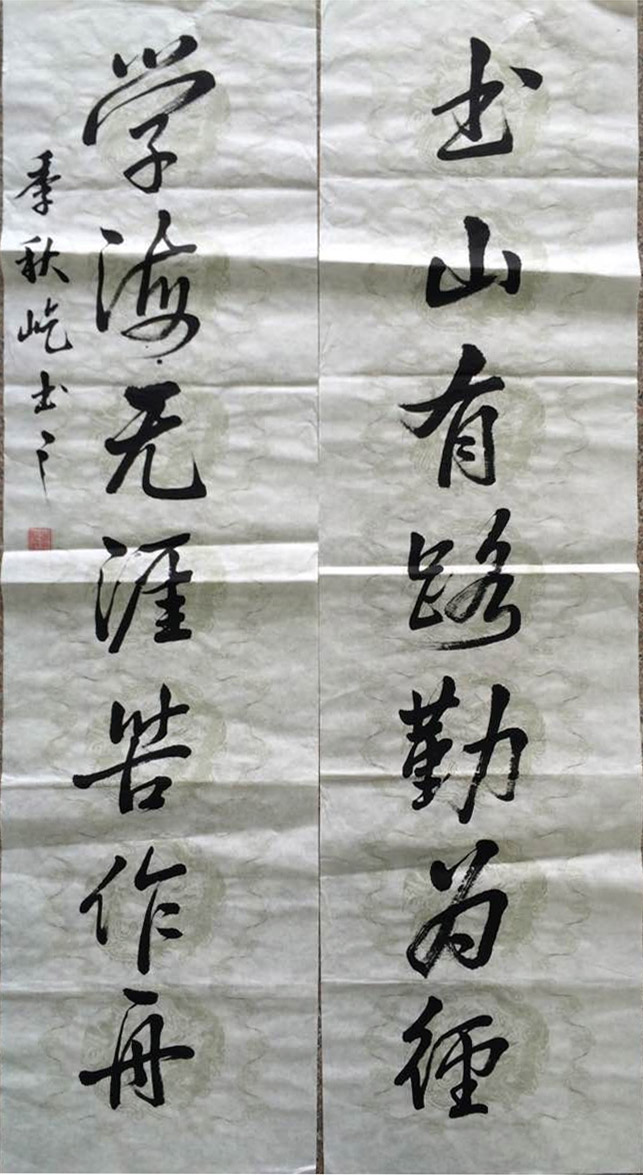 书山有路勤为径
学海无涯苦作舟
季秋屹书